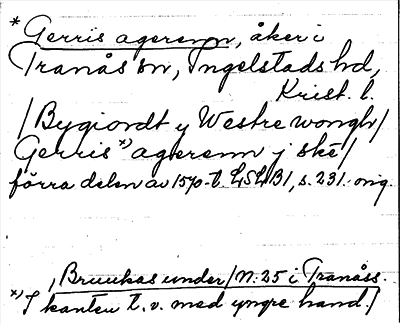 * Gerris agerenn, åker i
Tranås sn, Ingelstads hd,
Krist. l.
/Bygiordt y Westre wongh/
Gerris *) agerenn j ske/
förra delen av 1570-t. LSLB1, s. 231. orig.
, Bruukas under / N. 25 i Tranåss.
*) I kanten t. v. med yngre hand./